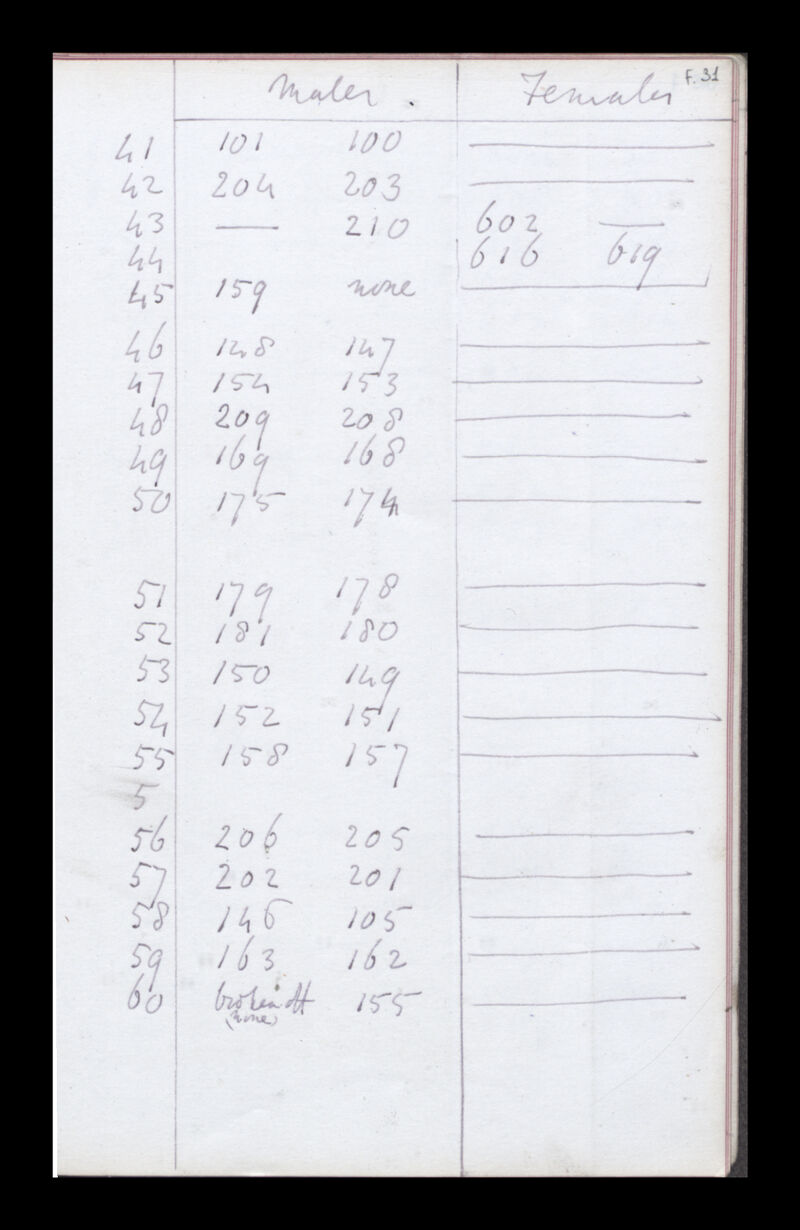 F. 31
Males Females
41 101 100 —
42 204 203 —
43 — 210 602 —
44 616 619
45 159 none —
46 148 147 —
47 154 153 —
48 209 208 —
49 169 168 —
50 175 174 —
51 179 178 —
52 181 180 —
53 150 149 —
54 152 151 —
55 158 157 —
5
56 206 205 —
57 202 201 —
58 146 105 —
59 163 162 —
60 broken off 155 —
(none)